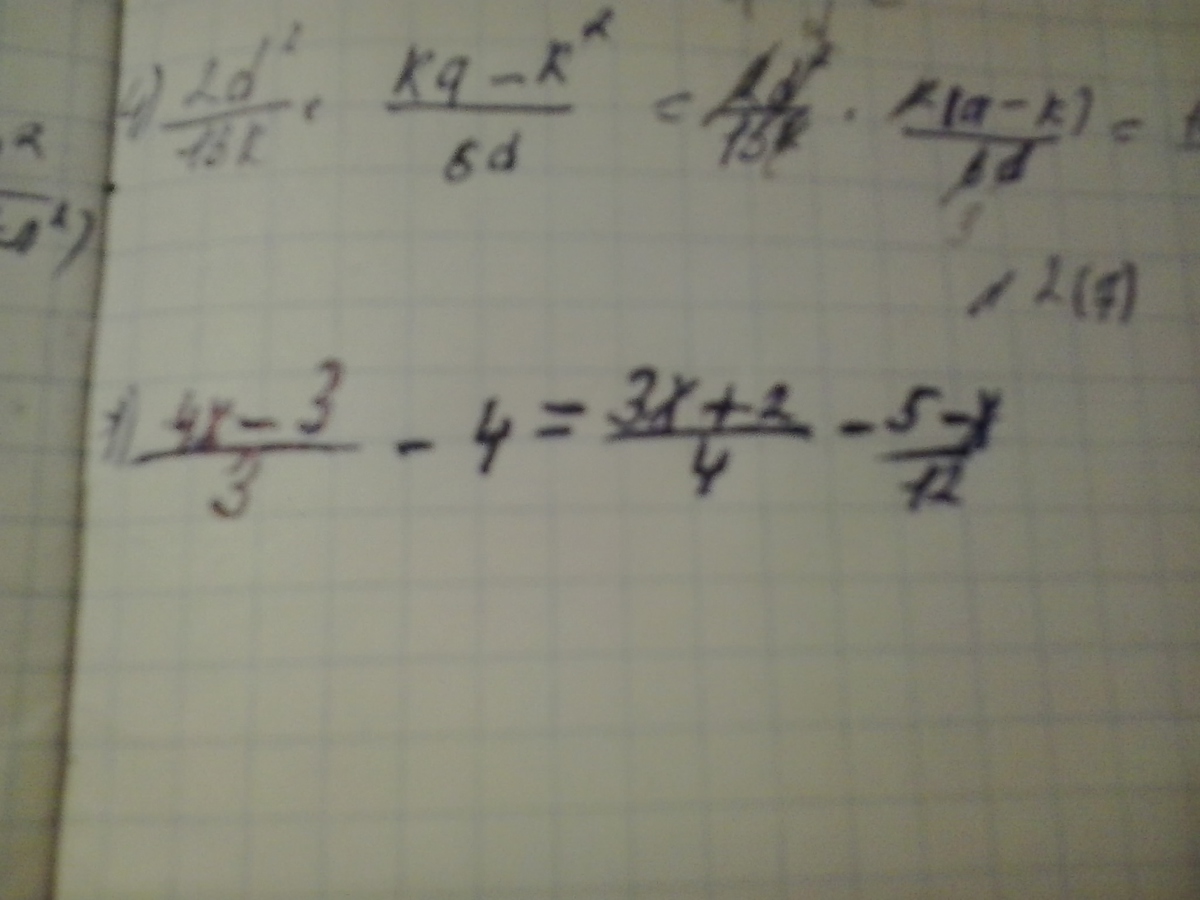 2
4) 2d²/15k · ka-k²/6d = 2d²/15k · k(a-k)/6d =
2(7)
4x-3/3 - 4 = 3x+2/4 - 5-x/12